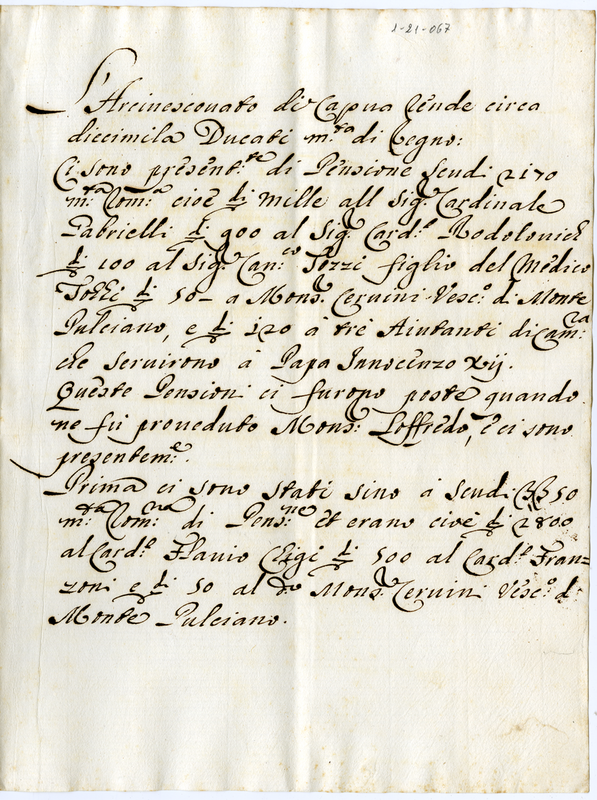 1-21-067
L'Arcivescovato di Capua rende circa
diecimila Ducati m.ta di Regno:
Ci sono present.te di Pensione Scudi 2170
m.ta Rom.a cioè ∆.di Mille all Sig.r Cardinale
Gabrielli ∆.di 900 al Sig.r Card.le Rodolovich
∆.di 100 al Sig.r Can.co Tozzi figlio del Medico
Tozzi ∆.di 50– a Mons.r Cervini Vesc.o di Monte
Pulciano, e ∆.di 120 à trè Aiutanti di Cam.ra
che servirono à Papa Innocenzo Xij.
Queste Pensioni ci furono poste quando
ne fù proveduto Mons.r Loffredo, e ci sono
presentem.te.
Prima ci sono stati sino à Scudi 3350
m.ta Rom.na di Pens.ne et erano cioè ∆.di 2800
al Card.le Flavio Chigi ∆.di 500 al Card.le Fran=
zoni e ∆.di 50 al d.o Mons.r Cervini Vesc.o di
Monte Pulciano.